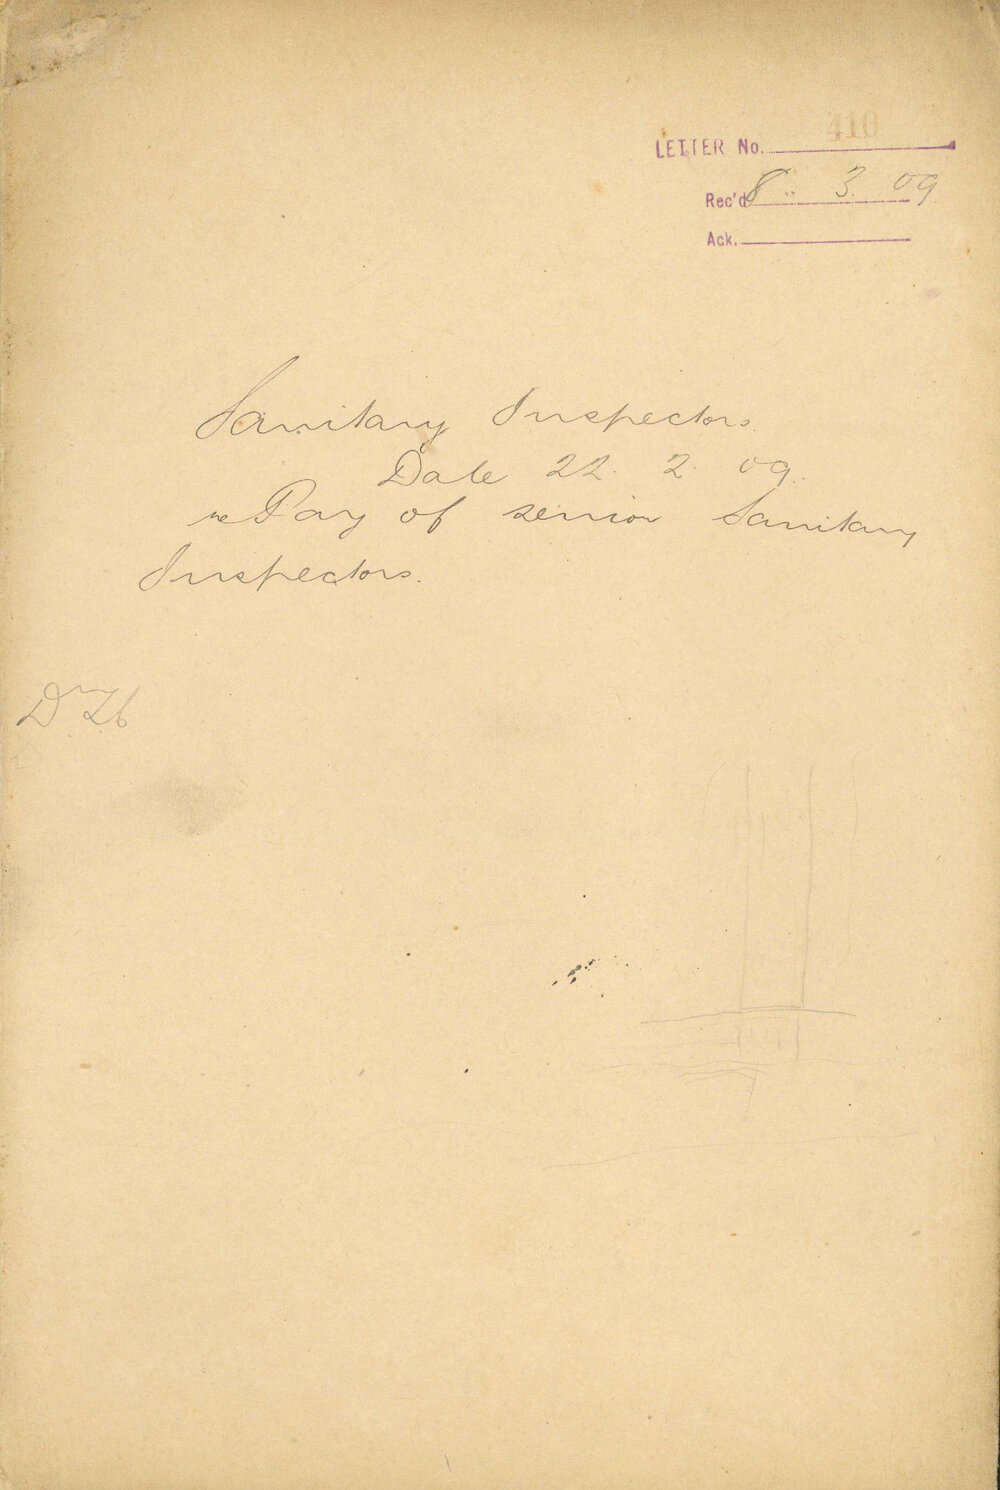 LETTER No. 410
Rec'd 8 .. 3. 09
Ack.
Sanitary Inspectors.
Date 22. 2. 09.
re Pay of senior Sanitary
Inspectors.